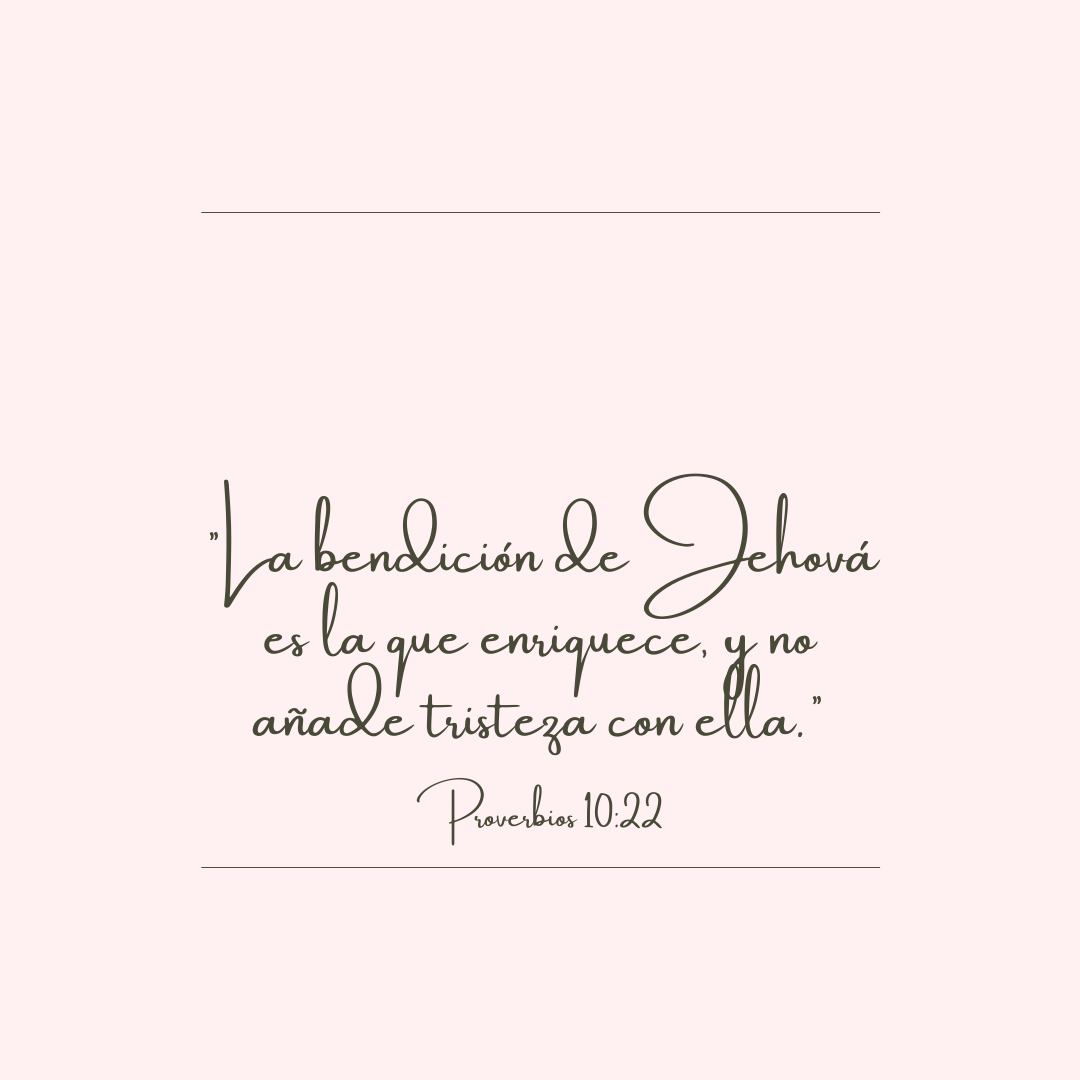 "La bendición de Jehová
es la que enriquece, y no
añade tristeza con ella."
Proverbios 10:22